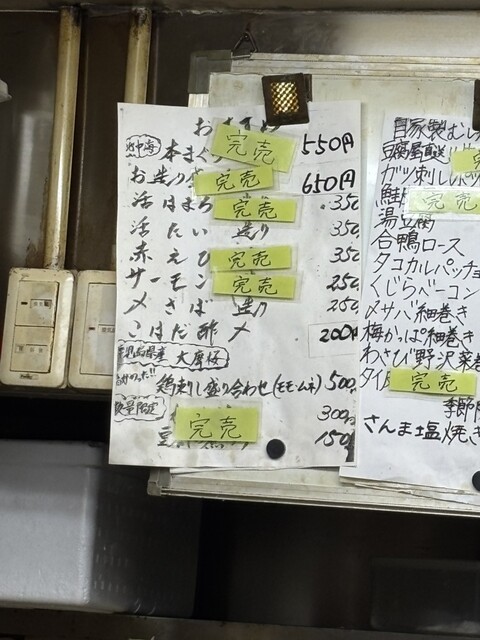 お
地中海 本まぐ 完売 550円
お造り 完売 650円
活はまち 完売 350
活たい 造り 350
赤えび 完売 350
サーモン 完売 250
〆さば 造り 250
こはだ酢〆 200円
鹿児島県産 大摩桜
鶏刺し盛り合わせ(モモ・ムネ) 500
数量限定 300
完売 150
自家製むし
豆腐屋直送
ガッ刺しポッ
鮭 完売
湯豆腐
合鴨ロース
タコカルパッチョ
くじらベーコン
〆サバ細巻き
梅かっぱ細巻き
わさび野沢菜巻
タイ 完売
季節
さんま塩焼き